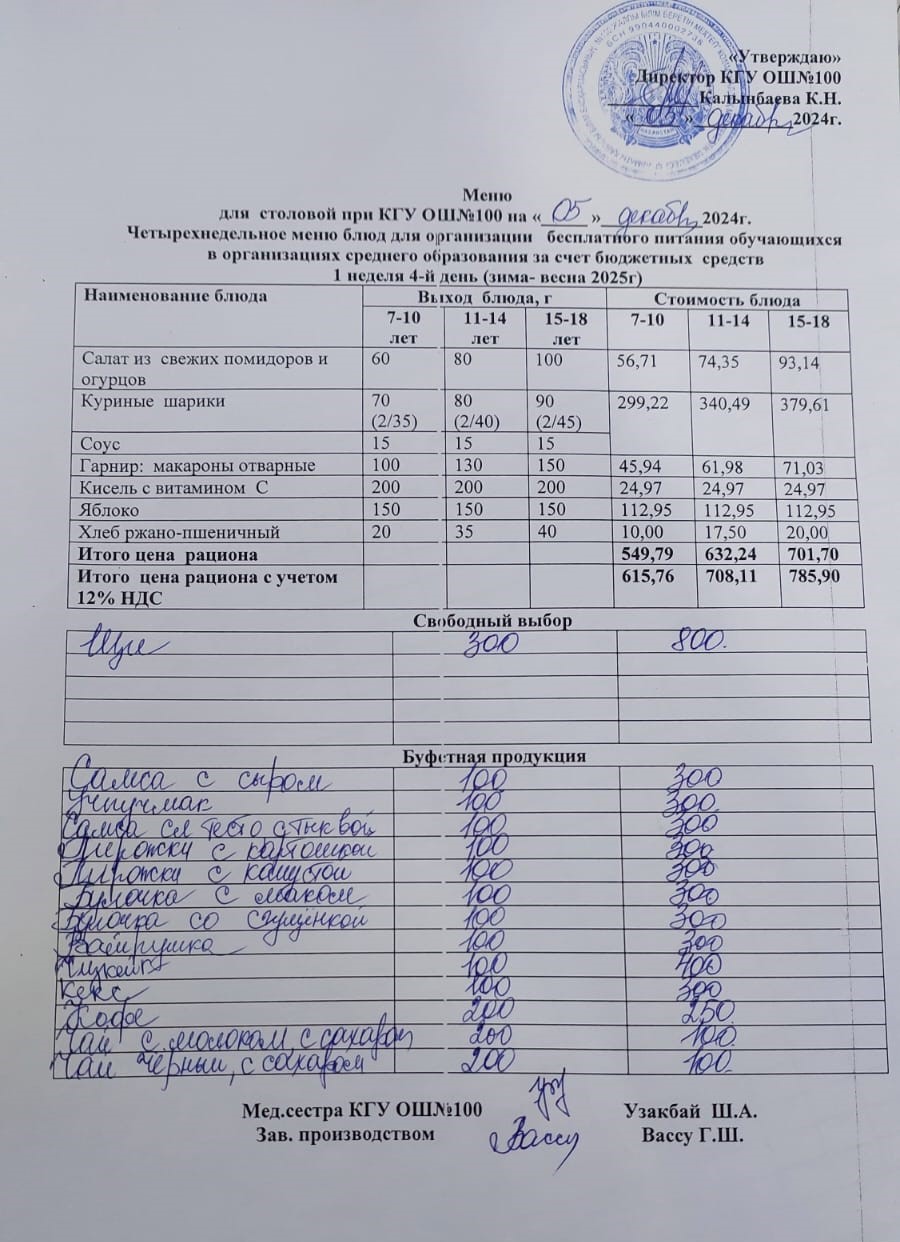 БСН 990440002736
«Утверждаю»
Директор КГУ ОШ№100
Калынбаева К.Н.
« 05 » декабрь 2024г.
Меню
для столовой при КГУ ОШ№100 на « 05 » декабрь 2024г.
Четырехнедельное меню блюд для организации бесплатного питания обучающихся
в организациях среднего образования за счет бюджетных средств
1 неделя 4-й день (зима- весна 2025г)
Наименование блюда Выход блюда, г Стоимость блюда
7-10 лет 11-14 лет 15-18 лет 7-10 11-14 15-18
Салат из свежих помидоров и огурцов 60 80 100 56,71 74,35 93,14
Куриные шарики 70 (2/35) 80 (2/40) 90 (2/45) 299,22 340,49 379,61
Соус 15 15 15
Гарнир: макароны отварные 100 130 150 45,94 61,98 71,03
Кисель с витамином С 200 200 200 24,97 24,97 24,97
Яблоко 150 150 150 112,95 112,95 112,95
Хлеб ржано-пшеничный 20 35 40 10,00 17,50 20,00
Итого цена рациона 549,79 632,24 701,70
Итого цена рациона с учетом 12% НДС 615,76 708,11 785,90
Свободный выбор
Щи 300 800.
Буфетная продукция
Самса с сыром 100 300
Учпучмак 100 300
Самса сл тесто с тыквой 100 300
Пирожки с картошкой 100 300
Пирожки с капустой 100 300
Булочка с маком 100 300
Булочка со сгущенкой 100 300
Ватрушка 100 300
100 400
Кекс 100 300
Кофе 200 250
Чай с молоком, с сахаром 200 100.
Чай чёрный, с сахаром 200 100.
Мед.сестра КГУ ОШ№100 Узакбай Ш.А.
Зав. производством Вассу Вассу Г.Ш.